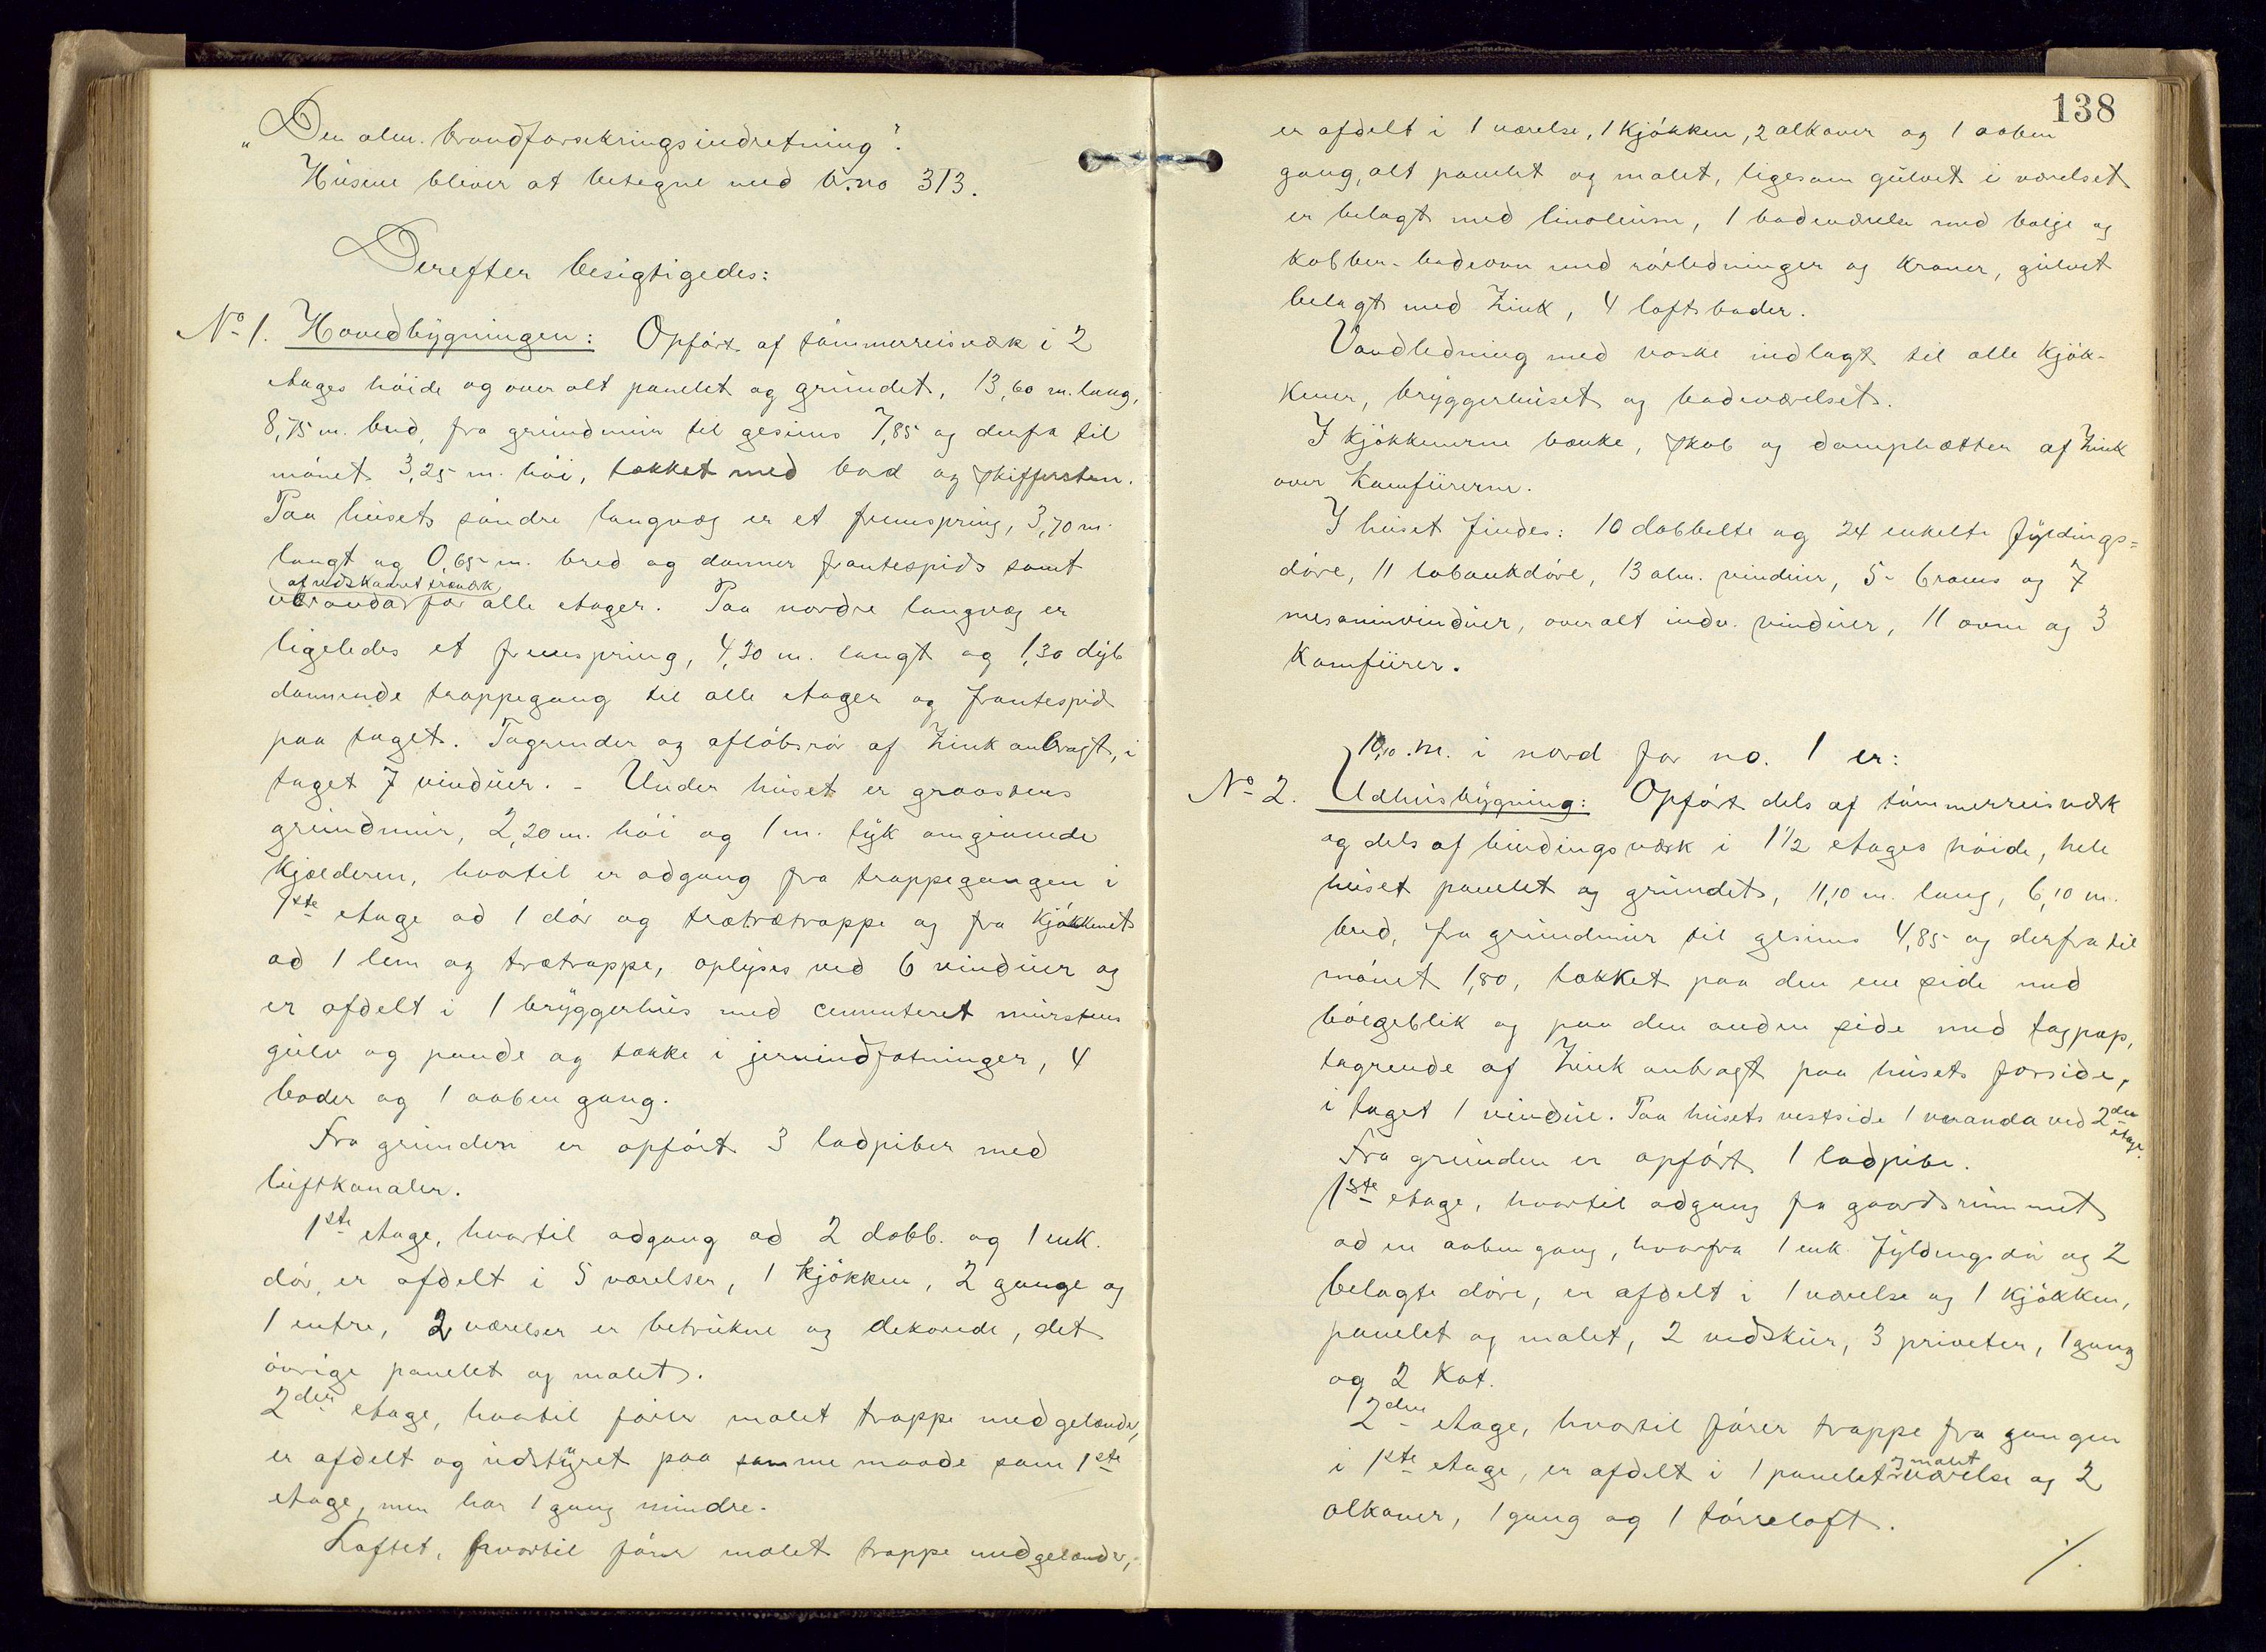 „Den alm. brandforsikringsindretning".
Husene bliver at betegne med b.no 313.
Derefter besigtigedes:
No 1. Hovedbygningen: Opført af tømmerreisværk i 2
etages høide og over alt panelet og grundet, 13,60 m. lang,
8,75 m. bred, fra grundmur til gesims 7,85 og derfra til
mønet 3,25 m. høi, tækket med bord og skiffersten.
Paa husets søndre langvæg er et fremspring, 3,70 m.
langt og 0,65 m. bred og danner frontespids samt
af udskaaret træværk
veranda for alle etager. Paa nordre langvæg er
ligeledes et fremspring, 4,30 m. langt og 1,30 dyb
dannende trappegang til alle etager og frontespid
paa taget. Tagrender og afløbsrør af Zink anbragt, i
taget 7 vinduer. - Under huset er graastens
grundmur, 2,20 m. høi og 1 m. tyk omgivende
kjælderen, hvortil er adgang fra trappegangen i
1ste etage ad 1 dør og trætrætrappe og fra kjøkkenet
ad 1 lem og trætrappe, oplyses ved 6 vinduer og
er afdelt i 1 bryggerhus med cementeret murstens
gulv og pande og takke i jernindfatninger, 4
boder og 1 aaben gang.
Fra grunden er opført 3 ladpiber med
luftkanaler.
1ste etage, hvortil adgang ad 2 dobb. og 1 enk.
dør, er afdelt i 5 værelser, 1 kjøkken, 2 gange og
1 entre, 2 værelser er betrukne og dekorede, det
øvrige panelet og malet.
2den etage, hvortil fører malet trappe med gelænder,
er afdelt og udstyret paa samme maade som 1ste
etage, men har 1 gang mindre.
Loftet, hvortil fører malet trappe med gelænder,
138
er afdelt i 1 værelse, 1 kjøkken, 2 alkover og 1 aaben
gang, alt panelet og malet, ligesom gulvet i værelset
er belagt med linoleum, 1 badeværelse med balje og
kobber-badeovn med rørledninger og kraner, gulvet
belagt med Zink, 4 loftsboder.
Vandledning med vaske indlagt til alle kjøk-
kener, bryggerhuset og badeværelset.
I kjøkkenerne bænke, skab og damphætter af Zink
over komfürerne.
I huset findes: 10 dobbelte og 24 enkelte fyldings-
døre, 11 labankdøre, 13 alm. vinduer, 5- 6 rams og 7
mesaninvinduer, overalt indv. vinduer, 11 ovne og 3
komfürer.
10,10 m. i nord for no. 1 er:
No 2. Udhusbygning: Opført dels af tømmerreisværk
og dels af bindingsværk i 1 1/2 etages høide, hele
huset panelet og grundet, 11,10 m. lang, 6,10 m.
bred, fra grundmur til gesims 4,85 og derfra til
mønet 1,80, tækket paa den ene side med
bølgeblik og paa den anden side med tagpap,
tagrende af Zink anbragt paa husets forside,
i taget 1 vindue. Paa husets vestside 1 veranda ved 2den
etage.
Fra grunden er opført 1 ladpibe.
1ste etage, hvortil adgang fra gaardsrummet
ad en aaben gang, hvorfra 1 enk. fyldingsdør og 2
belagte døre, er afdelt i 1 værelse og 1 kjøkken,
panelet og malet, 2 vedskur, 3 priveter, 1 gang
og 2 kot.
2den etage, hvortil fører trappe fra gangen
og malet
i 1ste etage, er afdelt i 1 panelet værelse og 2
alkover, 1 gang og 1 tørreloft.
./.